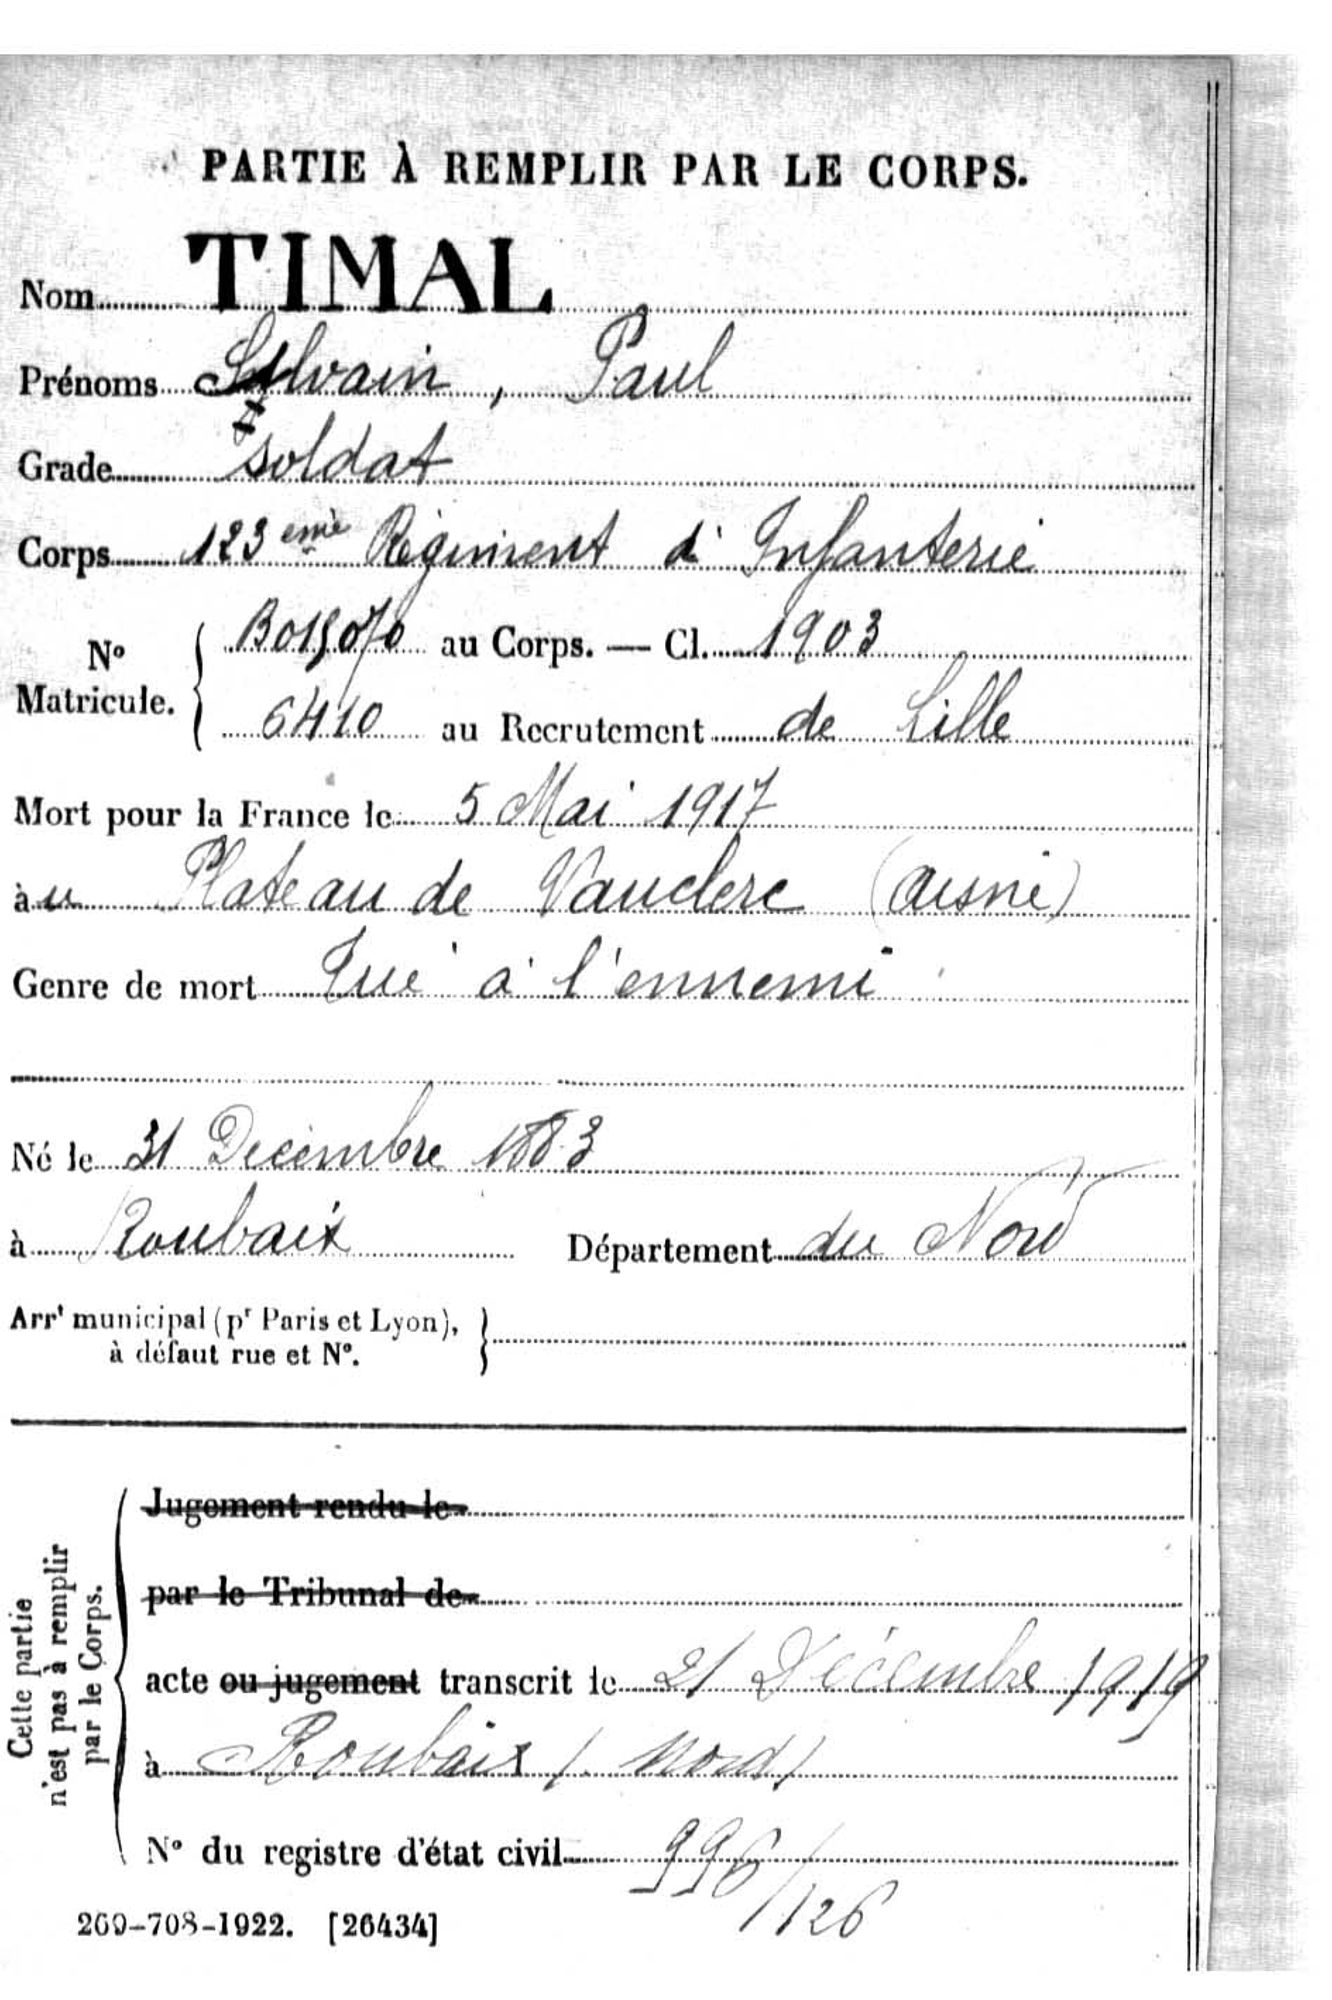 PARTIE À REMPLIR PAR LE CORPS.
Nom TIMAL
Prénoms Sylvain, Paul
Grade soldat
Corps 123eme Régiment d'Infanterie
No Matricule. { au Corps. — Cl. 1903
6410 au Recrutement de Lille
Mort pour la France le 5 Mai 1917
àu Plateau de Vauclerc (Aisne)
Genre de mort Tué à l'ennemi
Né le 31 Décembre 1883
à Roubaix Département du Nord
Arrt municipal (pr Paris et Lyon),
à défaut rue et No.
Cette partie
n'est pas à remplir
par le Corps.
Jugement rendu le
par le Tribunal de
acte ou jugement transcrit le 21 Décembre 1919
à Roubaix (Nord)
No du registre d'état civil 996/126
269-708-1922. [26434]